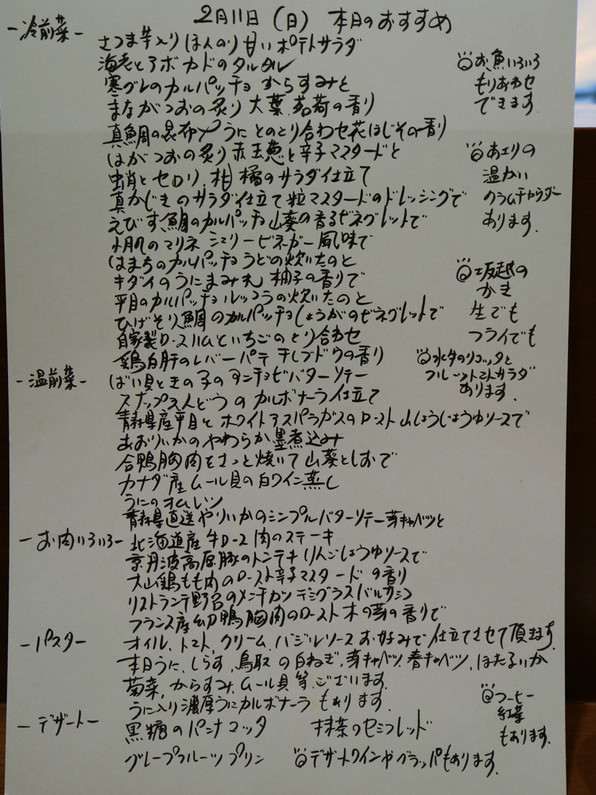 2月11日（日）本日のおすすめ
-冷前菜-
さつま芋入りほんのり甘いポテトサラダ
海老とアボカドのタルタル
寒グレのカルパッチョ からすみと
まながつおの炙り 大葉 茗荷の香り
真鯛の昆布〆うにとのとり合わせ花ほじその香り
はがつおの炙り 赤玉葱と辛子マスタードと
蛸とセロリ 柑橘のサラダ仕立て
真かじきのサラダ仕立て粒マスタードのドレッシングで
えびす鯛のカルパッチョ山葵の香るビネグレットで
のマリネ シェリービネガー風味で
はまちのカルパッチョうどの炊いたのと
キダイのうにまみれ 柚子の香りで
平目のカルパッチョルッコラの炊いたのと
ひげそり鯛のカルパッチョしょうがのビネグレットで
自家製ロースハムといちごのとり合わせ
鶏白肝のレバーパテ 干しブドウの香り
◎お魚いろいろ
もりあわせ
できます
◎あエリの
温かい
クラムチャウダー
あります
◎坂越の
かき
生でも
フライでも
◎水牛のリコッタと
フルーツトマトサラダ
あります
-温前菜-
ばい貝ときの子のアンチョビバターソテー
スナップえんどうのカルボナーラ仕立て
青森県産平目とホワイトアスパラガスのロースト 山しょうじょうゆソースで
あおりいかのやわらか墨煮込み
合鴨胸肉をさっと焼いて山葵としおで
カナダ産ムール貝の白ワイン蒸し
うにのオムレツ
青森県直送やりいかのシンプルバターソテー芽キャベツと
-お肉いろいろ-
北海道産牛ロース肉のステーキ
京丹波高原豚のトンテキりんごしょうゆソースで
大山鶏もも肉のロースト辛子マスタードの香り
リストランテ野呂のメンチカツ デミグラスバルサミコ
フランス産幼鴨胸肉のロースト木の芽の香りで
-パスタ-
オイル、トマト、クリーム、バジルソースお好みで仕立てさせて頂きます
本日うに、しらす、鳥取の白ねぎ、芽キャベツ、春キャベツ、ほたるいか
菊菜、からすみ、ムール貝等ございます。
うに入り濃厚うにカルボナーラもあります。
-デザート-
黒糖のパンナコッタ 抹茶のセミフレッド
グレープフルーツプリン ◎デザートワインやグラッパもあります。
◎コーヒー
紅茶
もあります。